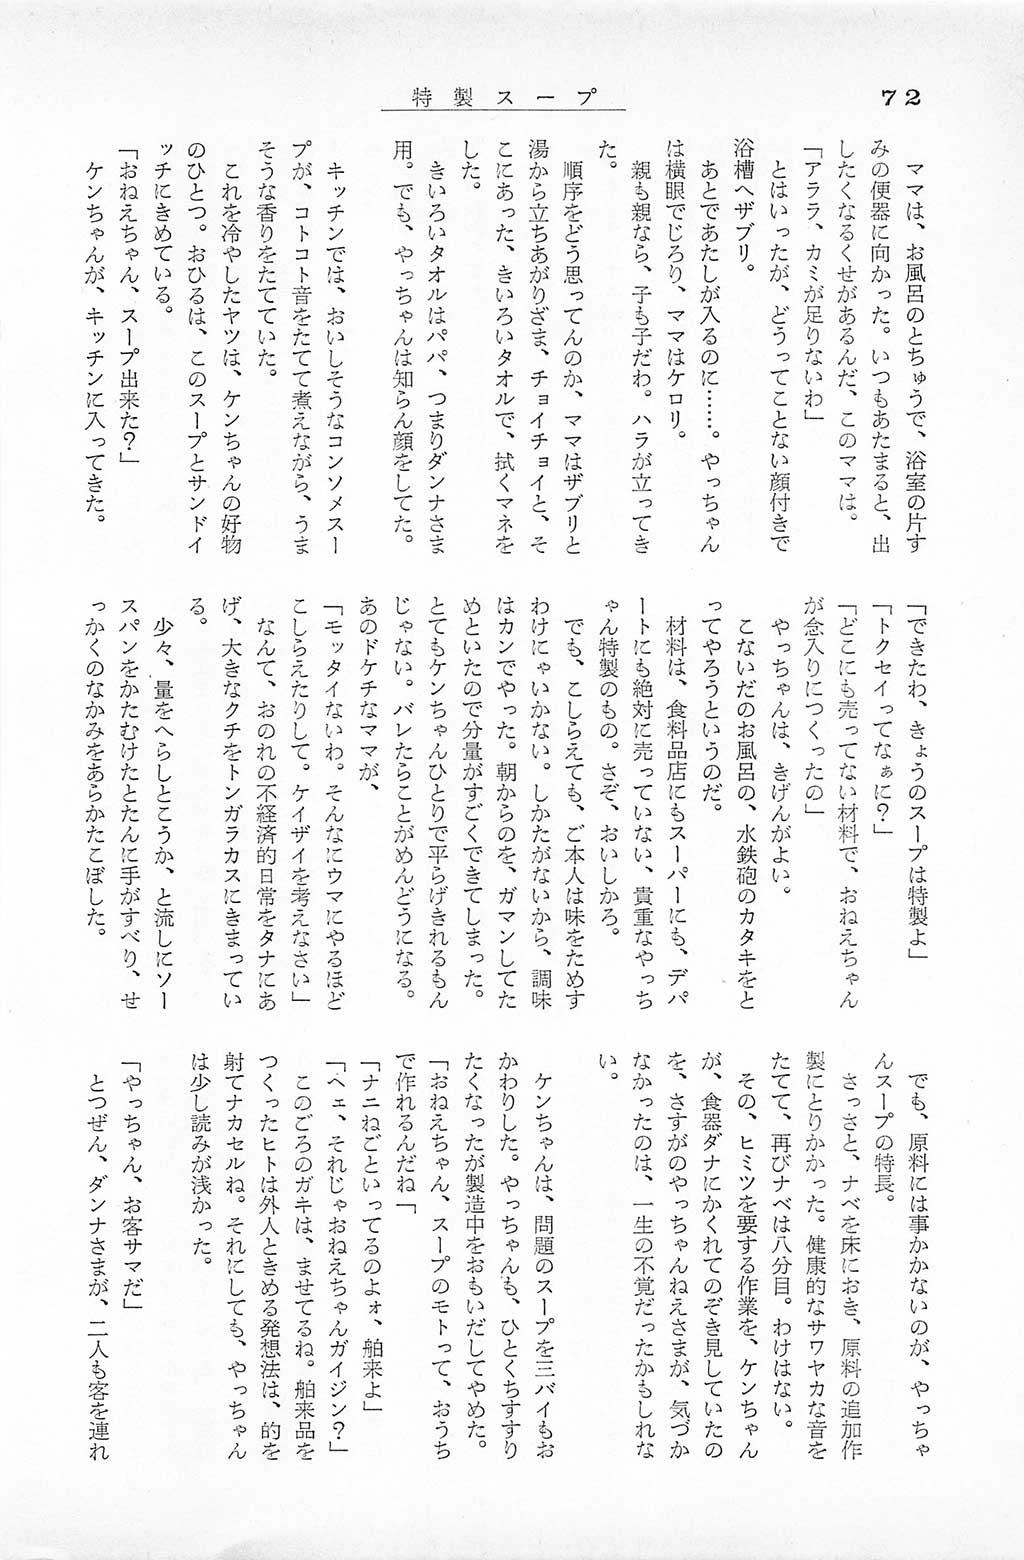 72
特製スープ
ママは、お風呂のとちゅうで、浴室の片す
みの便器に向かった。いつもあたまると、出
したくなるくせがあるんだ、このママは。
「アララ、カミが足りないわ」
とはいったが、どうってことない顔付きで
浴槽へザブリ。
あとであたしが入るのに……。やっちゃん
は横眼でじろり、ママはケロリ。
親も親なら、子も子だわ。ハラが立ってき
た。
順序をどう思ってんのか、ママはザブリと
湯から立ちあがりざま、チョイチョイと、そ
こにあった、きいろいタオルで、拭くマネを
した。
きいろいタオルはパパ、つまりダンナさま
用。でも、やっちゃんは知らん顔をしてた。
キッチンでは、おいしそうなコンソメスー
プが、コトコト音をたてて煮えながら、うま
そうな香りをたてていた。
これを冷やしたヤツは、ケンちゃんの好物
のひとつ。おひるは、このスープとサンドイ
ッチにきめている。
「おねえちゃん、スープ出来た?」
ケンちゃんが、キッチンに入ってきた。
「できたわ、きょうのスープは特製よ」
「トクセイってなぁに?」
「どこにも売ってない材料で、おねえちゃん
が念入りにつくったの」
やっちゃんは、きげんがよい。
こないだのお風呂の、水鉄砲のカタキをと
ってやろうというのだ。
材料は、食料品店にもスーパーにも、デパ
ートにも絶対に売っていない、貴重なやっち
ゃん特製のもの。さぞ、おいしかろ。
でも、こしらえても、ご本人は味をためす
わけにゃいかない。しかたがないから、調味
はカンでやった。朝からのを、ガマンしてた
めといたので分量がすごくできてしまった。
とてもケンちゃんひとりで平らげきれるもん
じゃない。バレたらことがめんどうになる。
あのドケチなママが、
「モッタイないわ。そんなにウマにやるほど
こしらえたりして。ケイザイを考えなさい」
なんて、おのれの不経済的日常をタナにあ
げ、大きなクチをトンガラカスにきまってい
る。
少々、量をへらしとこうか、と流しにソー
スパンをかたむけたとたんに手がすべり、せ
っかくのなかみをあらかたこぼした。
でも、原料には事かかないのが、やっちゃ
んスープの特長。
さっさと、ナベを床におき、原料の追加作
製にとりかかった。健康的なサワヤカな音を
たてて、再びナベは八分目。わけはない。
その、ヒミツを要する作業を、ケンちゃん
が、食器ダナにかくれてのぞき見していたの
を、さすがのやっちゃんねえさまが、気づか
なかったのは、一生の不覚だったかもしれな
い。
ケンちゃんは、問題のスープを三バイもお
かわりした。やっちゃんも、ひとくちすすり
たくなったが製造中をおもいだしてやめた。
「おねえちゃん、スープのモトって、おうち
で作れるんだね「
「ナニねごといってるのよォ、舶来よ」
「ヘェ、それじゃおねえちゃんガイジン?」
このごろのガキは、ませてるね。舶来品を
つくったヒトは外人ときめる発想法は、的を
射てナカセルね。それにしても、やっちゃん
は少し読みが浅かった。
「やっちゃん、お客サマだ」
とつぜん、ダンナさまが、二人も客を連れ